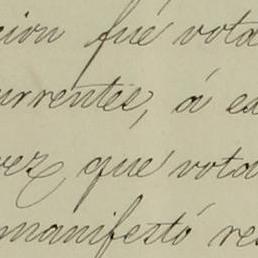 cion fué vota
urrentes, á ex
vez que vota
manifestó re